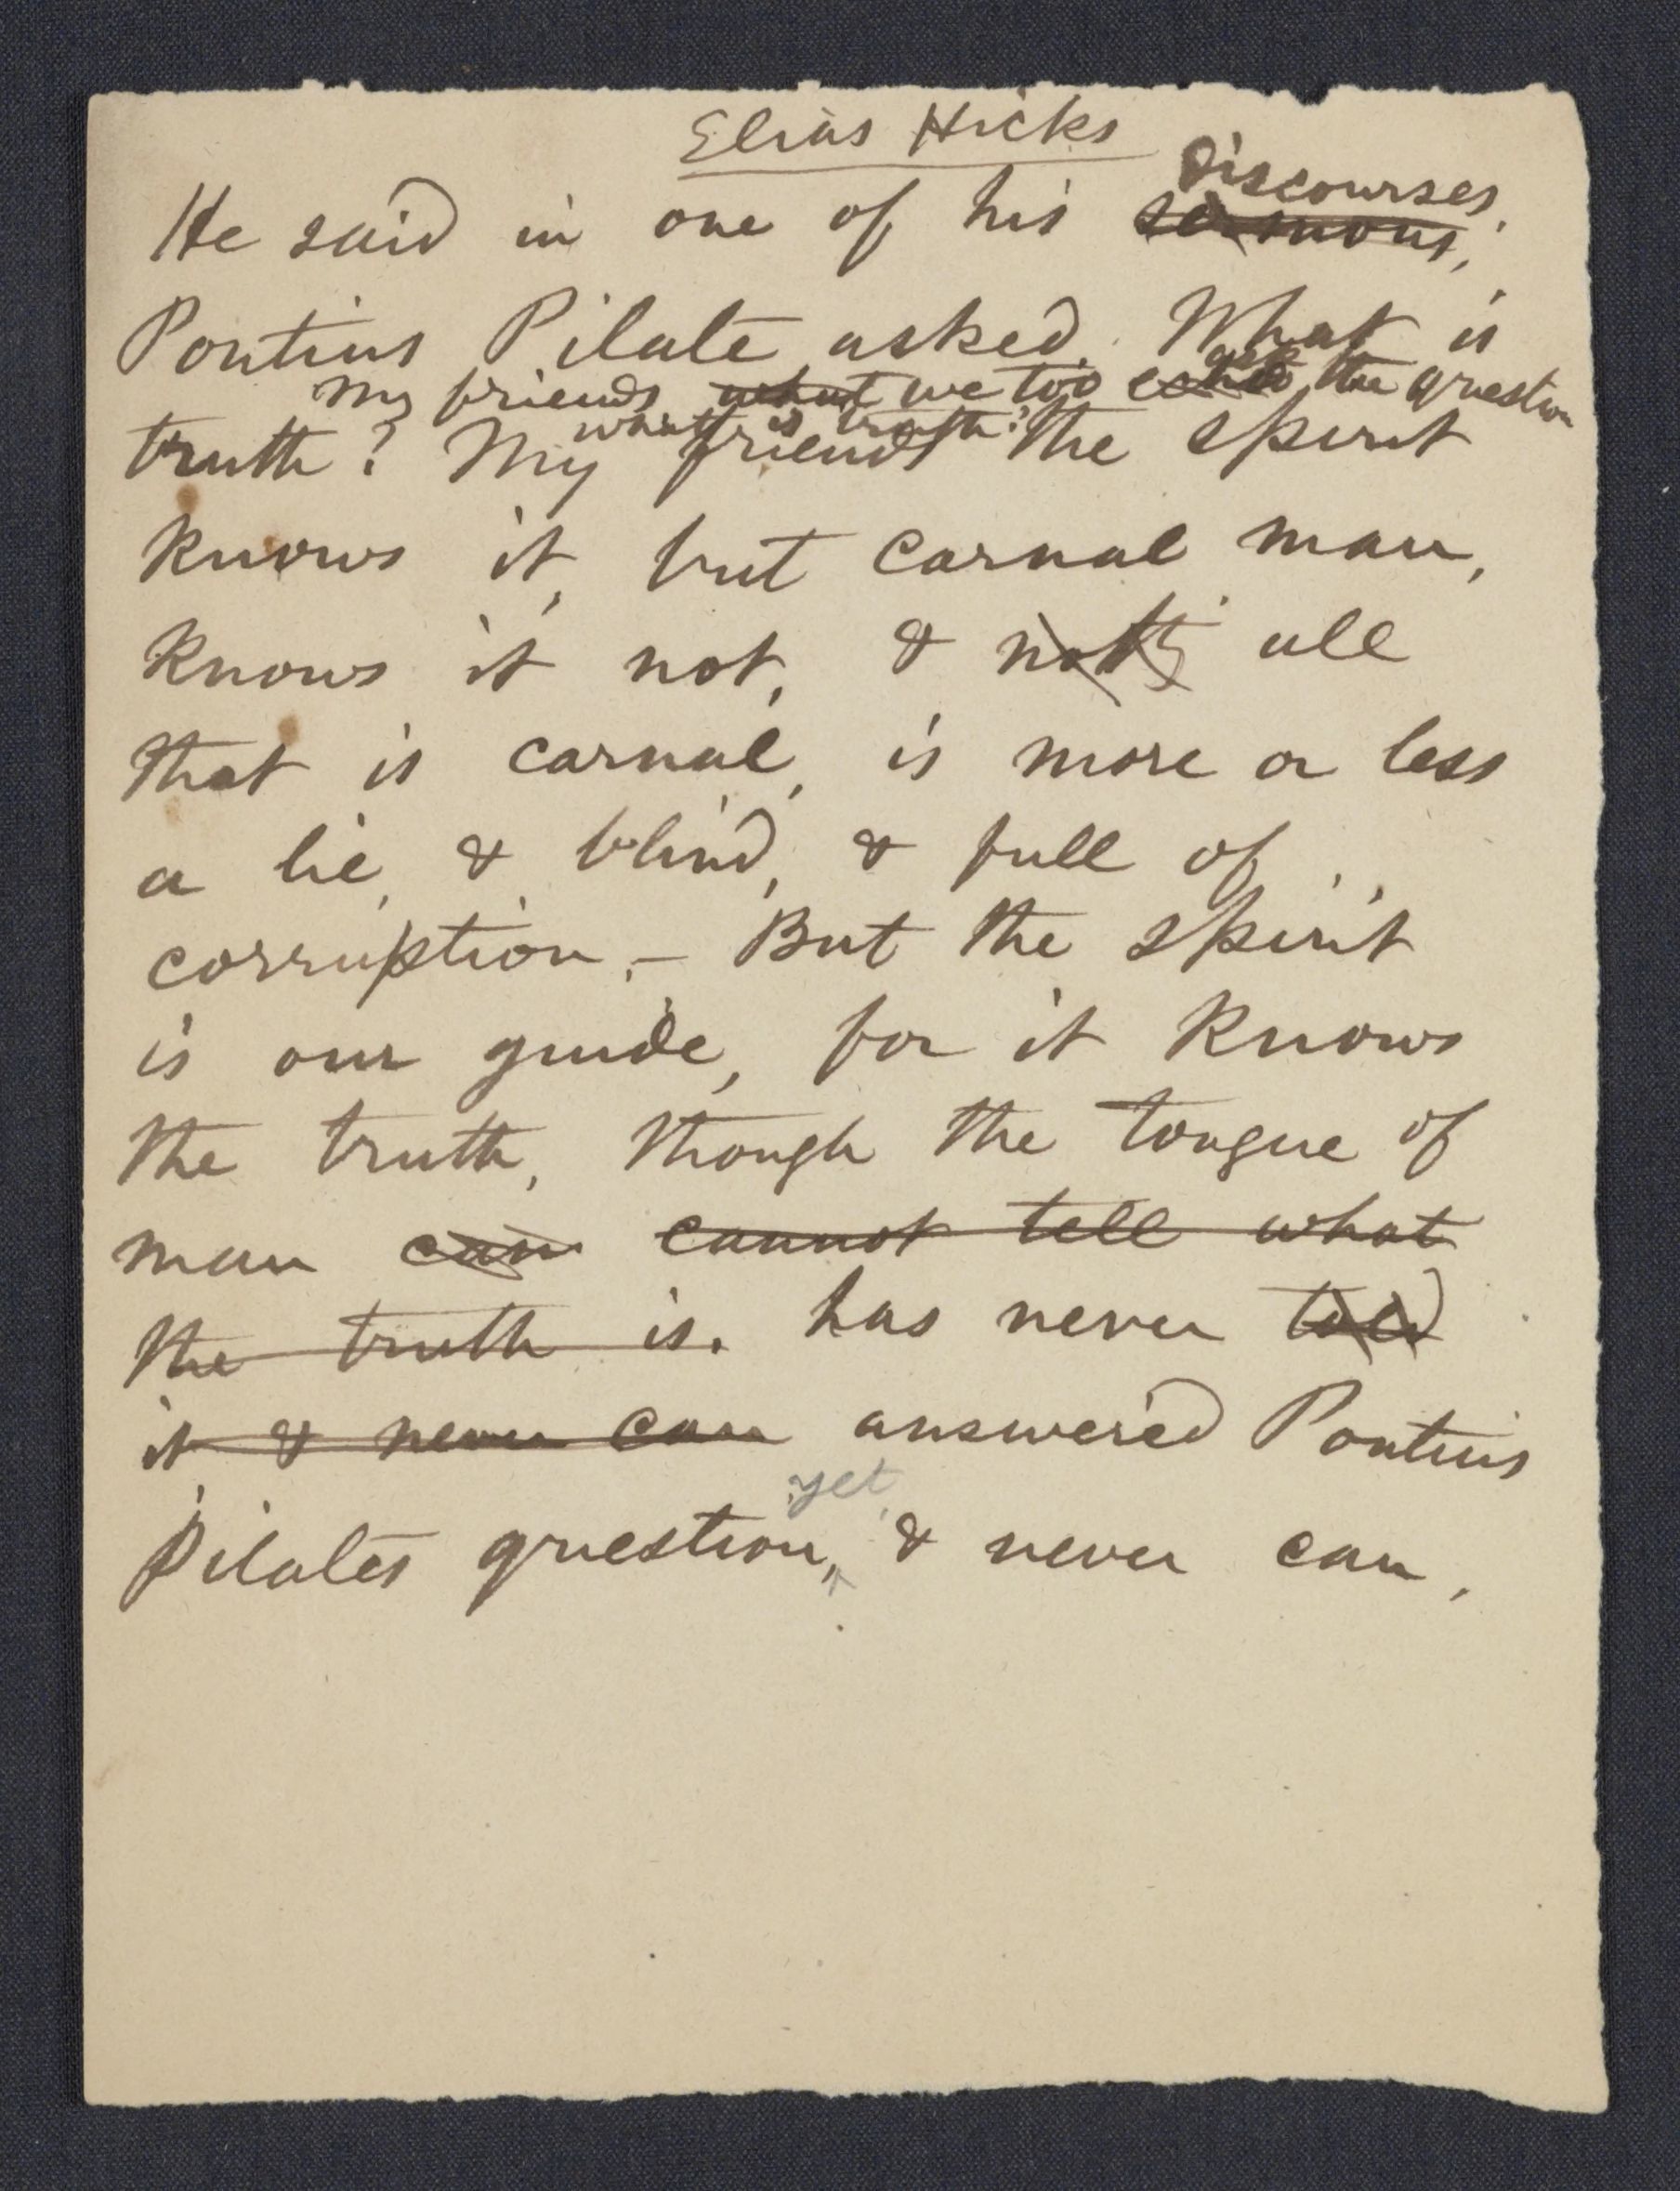 Elias Hicks
Discourses,
He said in one of his sermons,
Pontius Pilate asked. What is
ask
my friends what we too the question
what is truth?
truth? My friends The spirit
knows it, but carnal man,
knows it not, & all
that is carnal, is more or less
a lie, & blind, & full of
corruption. – But the spirit
is our guide, for it knows
the truth, though the tongue of
man can cannot tell what
the truth is. has never told
it & never can answered Pontius
yet
Pilates question, & never can.